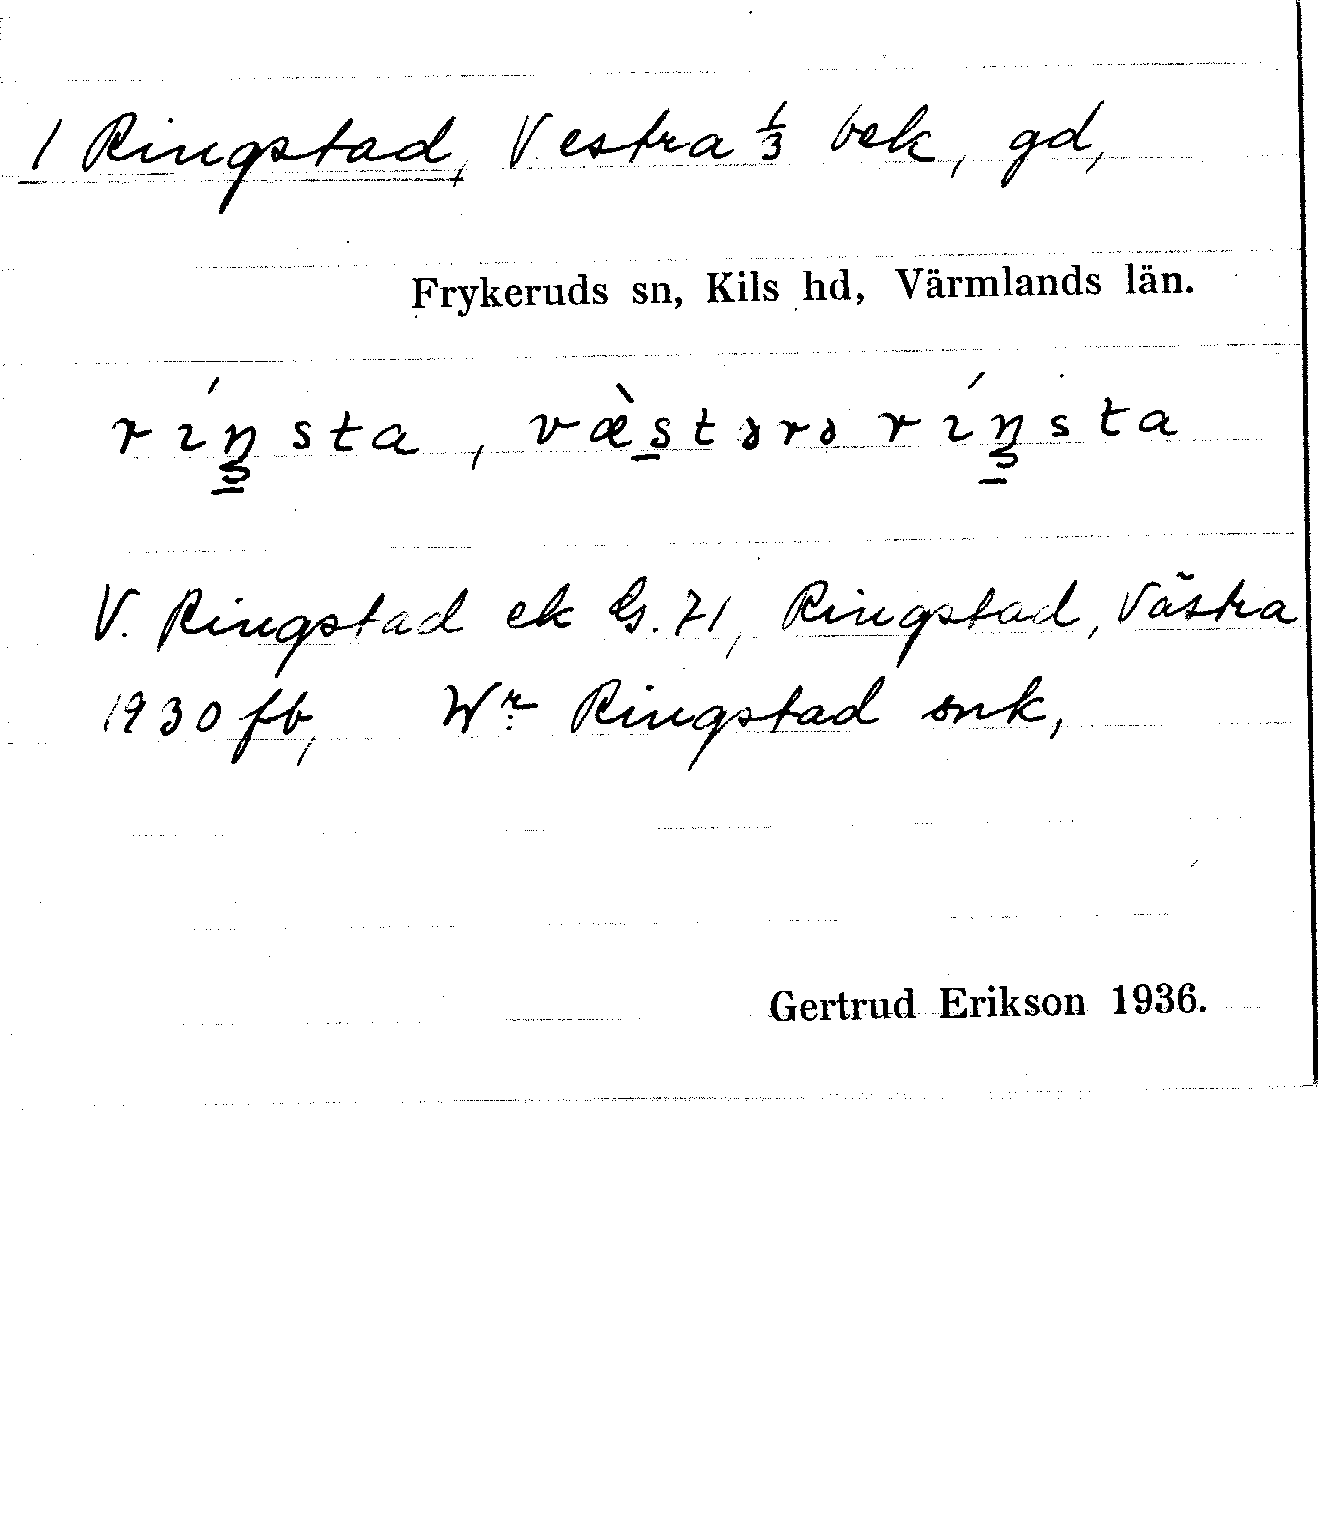 1 Ringstad, Vestra 1/3 bek, gd,
Frykeruds sn, Kils hd, Värmlands län.
ríŋsta, væ̀stərə ríŋsta
V. Ringstad ek G. 71, Ringstad, Västra
1930 fb, Wr Ringstad snk,
Gertrud Erikson 1936.